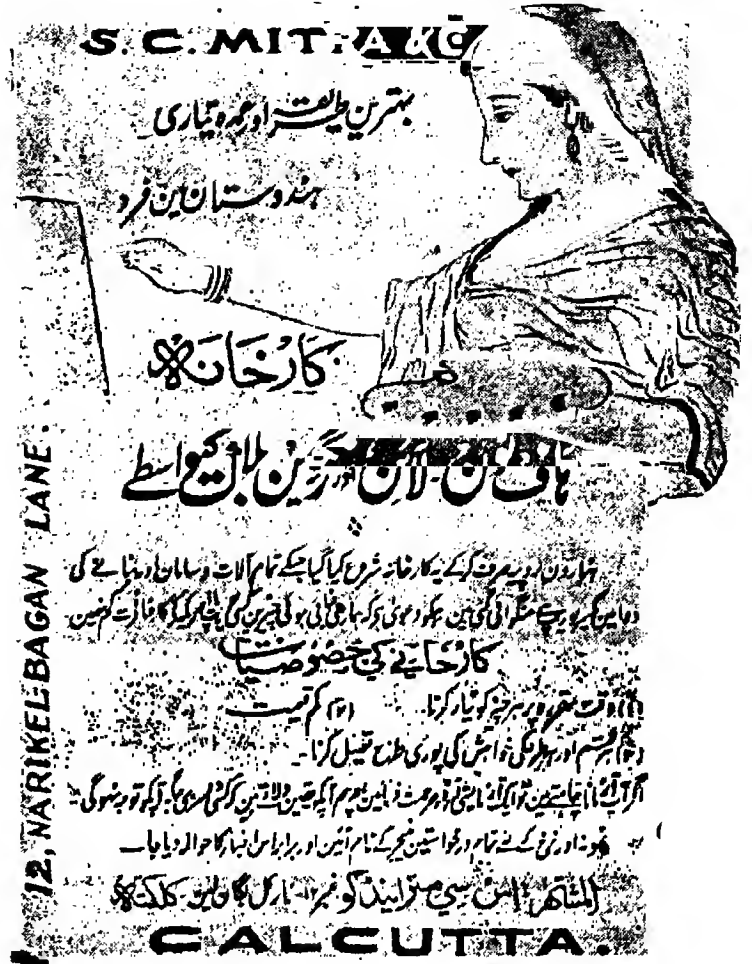 S. C. MITRA & C
بہترین طریقہ اور عمدہ تیاری
ہندوستان مین فرد
کارخانہ
ہاف ٹن، لائن اور گرین بلاک کیواسطے
ہزارون روپیہ صرف کرکے یہ کارخانہ شروع کیا گیا جسکے تمام آلات و سامان
منگوائی گئی ہین ہمکو دعوی ہے کہ ہماری بنائی ہوئی چیزین کسی
کارخانے کی خصوصیات
(۱) وقت مقررہ پر ہر چیز کو تیار کرنا۔ (۲) کم قیمت
(۳) ہر قسم اور ہر رنگ کی خواہش کی پوری طرح تعمیل کرنا۔
اگر آپ آزمانا چاہتے ہین تو ایک آزمایشی آرڈر مرحمت فرمائین ہم آپکو یقین دلاتے ہین کہ کسی دوسری جگہ آپکو توجہ نہوگی۔
نمونہ اور نرخ کے لئے تمام درخواستین منیجر کے نام آئین اور برابر اس اخبار کا حوالہ دیا جاے
المشتھر: ایس سی مترا اینڈ کو نمبر ۱۲ نارکل بگان لین کلکتہ
CALCUTTA.
12, NARIKEL BAGAN LANE.